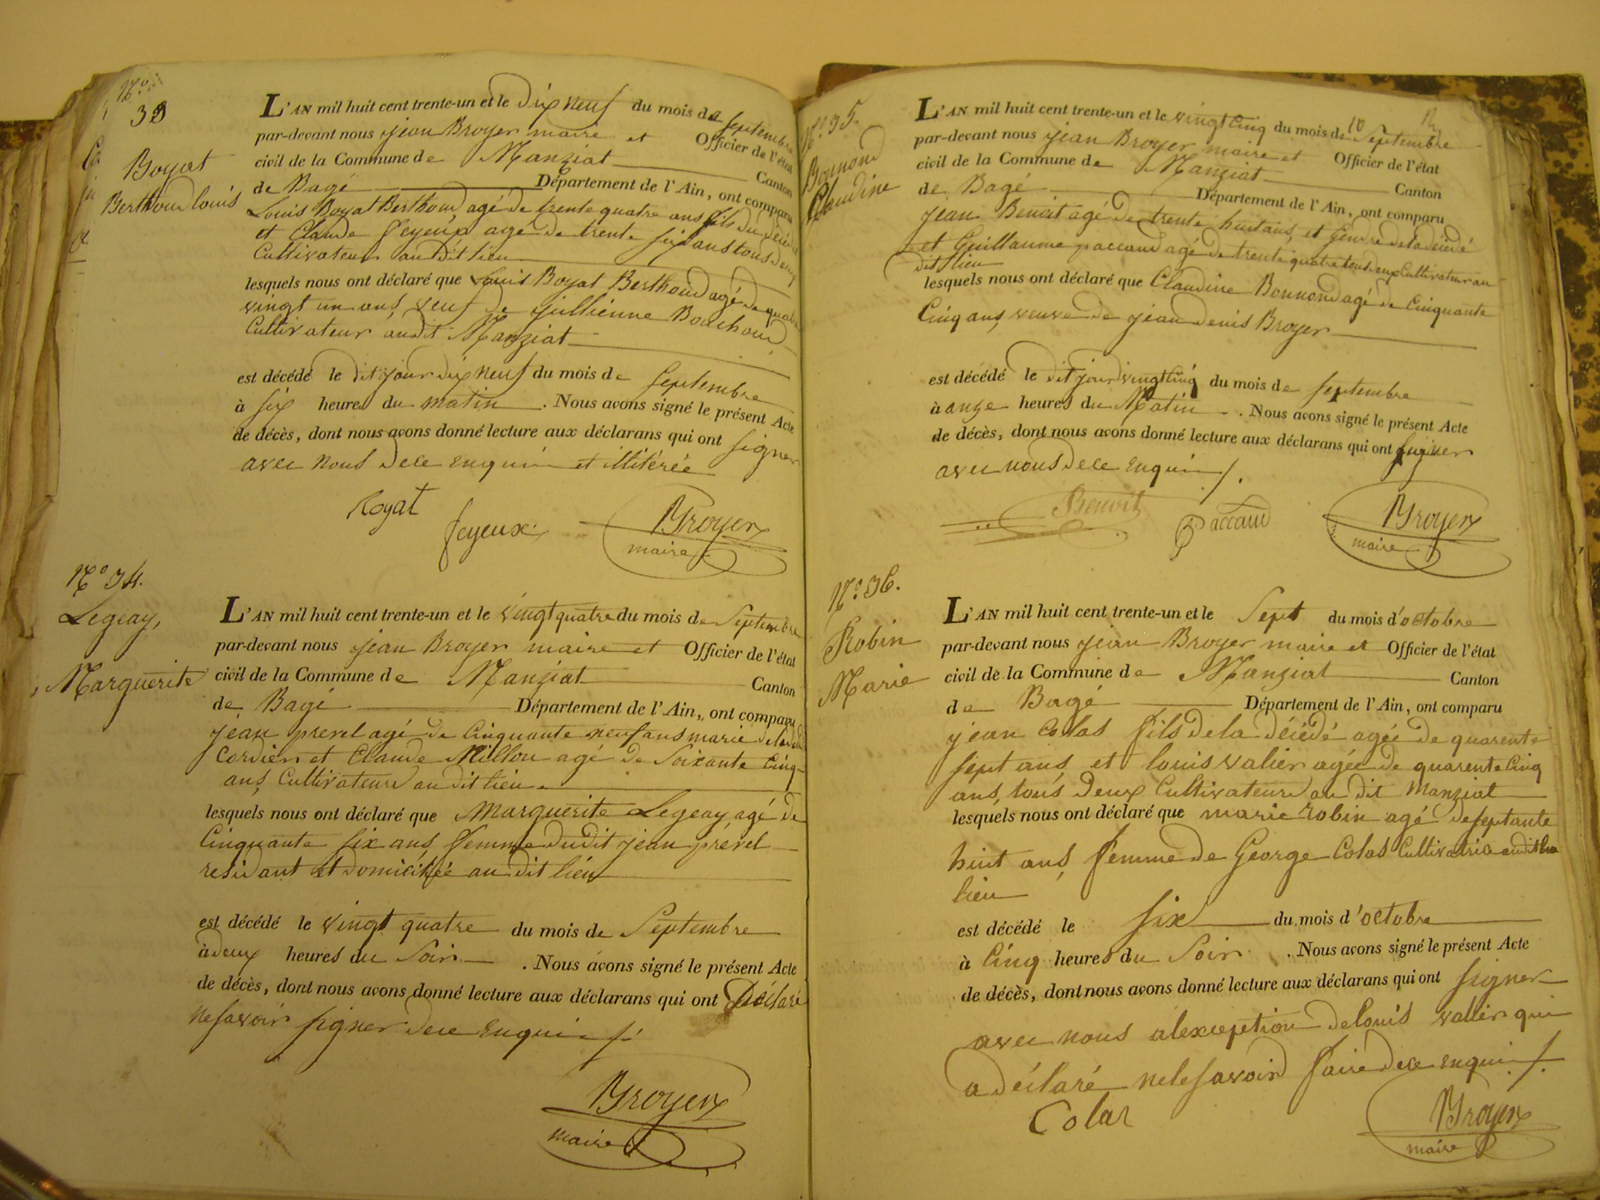 N.º
33
Boyat
Berthoud louis
L'AN mil huit cent trente-un et le dix neuf du mois de Septembre
par-devant nous jean Broyer maire et Officier de l'état
civil de la Commune de Manziat Canton
de Bagé Département de l'Ain, ont comparu
Louis Boyat Berthoud agé de trente quatre ans fils du
et Claude feyeux agé de trente six ans tous deux
Cultivateur audit lieu
lesquels nous ont déclaré que Louis Boyat Berthoud agé de quatre
vingt un ans veuf de jullienne Bouchoud
Cultivateur audit Manziat
est décédé le dit jour dix neuf du mois de Septembre
à six heures du matin. Nous avons signé le présent Acte
de décès, dont nous avons donné lecture aux déclarans qui ont signer
avec nous dece enquin et illitérée
Boyat
feyeux
Broyer
maire
N.º 34.
Legeay,
Marguerite
L'AN mil huit cent trente-un et le vingt quatre du mois de Septembre
par-devant nous jean Broyer maire et Officier de l'état
civil de la Commune de Manziat Canton
de Bagé Département de l'Ain, ont comparu
jean prevel agé de Cinquante neuf ans marie
Cordier et Claude Millou agé de Soixante Cinq
ans Cultivateur audit lieu
lesquels nous ont déclaré que Marguerite Legeay agé de
Cinquante six ans femme dudit jean prével
residant et domicilée audit lieu
est décédé le vingt quatre du mois de Septembre
à deux heures du Soir. Nous avons signé le présent Acte
de décès, dont nous avons donné lecture aux déclarans qui ont Déclaré
ne savoir signer dece enquin
Broyer
maire
N.º 35.
Bonnond
Claudine
L'AN mil huit cent trente-un et le vingt cinq du mois de Septembre
par-devant nous jean Broyer maire et Officier de l'état
civil de la Commune de Manziat Canton
de Bagé Département de l'Ain, ont comparu
jean Benoit agé de trente huit ans et gendre de la décédé
et Guillaume paccaud agé de trente quatre tous deux Cultivateur au
dit lieu
lesquels nous ont déclaré que Claudine Bonnond agé de Cinquante
Cinq ans veuve de jean denis Broyer
est décédé le dit jour vingt Cinq du mois de Septembre
à onze heures du Matin. Nous avons signé le présent Acte
de décès, dont nous avons donné lecture aux déclarans qui ont signer
avec nous dece enquin
Benoit
Paccaud
Broyer
maire
N.º 36.
Robin
Marie
L'AN mil huit cent trente-un et le Sept du mois d'octobre
par-devant nous jean Broyer maire et Officier de l'état
civil de la Commune de Manziat Canton
de Bagé Département de l'Ain, ont comparu
jean Colas fils de la décédé agée de quarente
sept ans et louis valier agée de quarente Cinq
ans tous Deux Cultivateur au dit Manziat
lesquels nous ont déclaré que marie robin agé de septante
huit ans femme de George Colas Cultivatrice audit
lieu
est décédé le Six du mois d'octobre
à Cinq heures du Soir. Nous avons signé le présent Acte
de décès, dont nous avons donné lecture aux déclarans qui ont signer
avec nous alexception de louis valier qui
a déclaré ne le savoir faire dece enquin
Colas
Broyer
maire